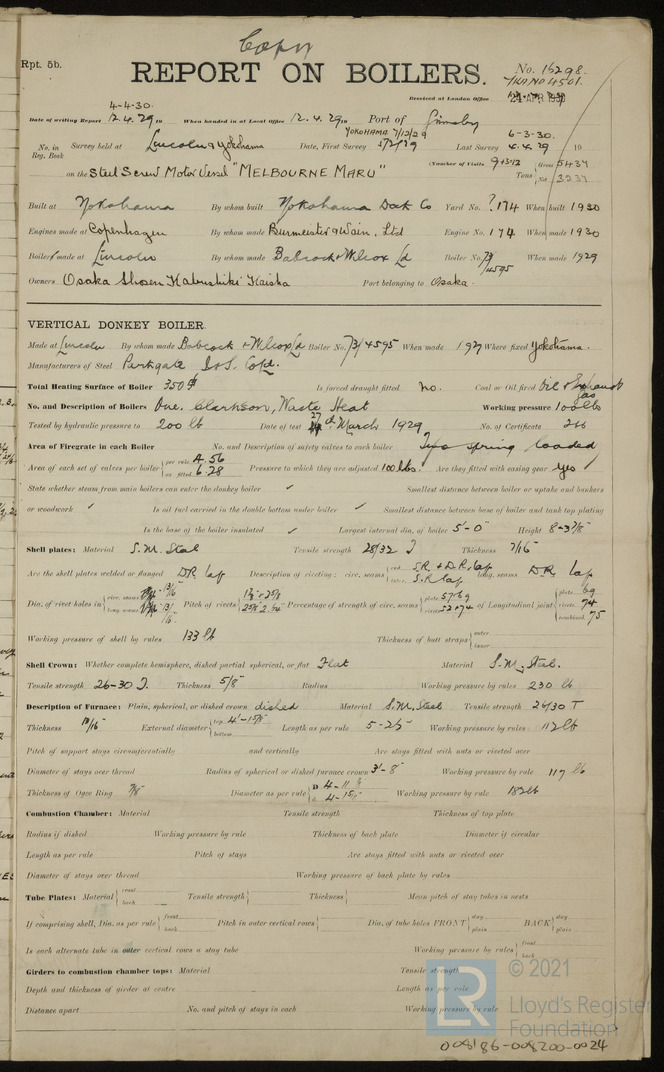 Copy
Rpt. 5b.
REPORT ON BOILERS.
No. 16298.
Received at London Office
APR 1930
4-4-30.
Date of writing Report 12.4.29 When handed in at Local Office 12.4.29 Port of Grimsby
YOKOHAMA 7/12/29 6-3-30.
No. in Reg. Book Survey held at Lincoln & Yokohama Date, First Survey Last Survey 4.4.29 19
(Number of Visits
on the Steel Screw Motor Vessel "MELBOURNE MARU" Tons Gross 5437 Net 3237
Built at Yokohama By whom built Yokohama Dock Co Yard No. 174 When built 1930
Engines made at Copenhagen By whom made Burmeister & Wain, Ltd Engine No. 174 When made 1930
Boiler made at Lincoln By whom made Babcock & Wilcox Ld Boiler No. 73/4595 When made 1929
Owners Osaka Shosen Kabushiki Kaisha Port belonging to Osaka.
VERTICAL DONKEY BOILER.
Made at Lincoln By whom made Babcock & Wilcox Ld Boiler No. 73/4595 When made 1929 Where fixed Yokohama.
Manufacturers of Steel Parkgate I & S. Co Ld.
Total Heating Surface of Boiler 350 Is forced draught fitted No. Coal or Oil fired Oil & Exhaust gas
No. and Description of Boilers One, Clarkson, Waste Heat Working pressure 100 lbs
Tested by hydraulic pressure to 200 lb Date of test 27th March 1929 No. of Certificate 266
Area of Firegrate in each Boiler No. and Description of safety valves to each boiler Two spring loaded
Area of each set of valves per boiler per rule 4.56 as fitted 6.28 Pressure to which they are adjusted 100 lbs. Are they fitted with easing gear yes
State whether steam from main boilers can enter the donkey boiler ✓ Smallest distance between boiler or uptake and bunkers
or woodwork ✓ Is oil fuel carried in the double bottom under boiler ✓ Smallest distance between base of boiler and tank top plating
Is the base of the boiler insulated ✓ Largest internal dia. of boiler 5'-0" Height 8-3 7/8"
Shell plates: Material S.M. Steel Tensile strength 28/32 T Thickness 7/16"
Are the shell plates welded or flanged D.R. lap Description of riveting: circ. seams end S.R. & D.R. lap inter. S.R. lap long. seams D.R. lap
Dia. of rivet holes in circ. seams long. seams Pitch of rivets Percentage of strength of circ. seams plate rivets 52 & 74 of Longitudinal joint plate 69 rivets 74 combined 75
Working pressure of shell by rules 133 lb Thickness of butt straps outer inner
Shell Crown: Whether complete hemisphere, dished partial spherical, or flat Flat Material S.M. Steel.
Tensile strength 26-30 T. Thickness 5/8" Radius Working pressure by rules 230 lb
Description of Furnace: Plain, spherical, or dished crown dished Material S.M. Steel Tensile strength 26/30 T
Thickness External diameter top bottom Length as per rule Working pressure by rules 112 lb
Pitch of support stays circumferentially and vertically Are stays fitted with nuts or riveted over
Diameter of stays over thread Radius of spherical or dished furnace crown 3'-8" Working pressure by rule 117 lb
Thickness of Ogee Ring 7/8" Diameter as per rule Working pressure by rule 182 lb
Combustion Chamber: Material Tensile strength Thickness of top plate
Radius if dished Working pressure by rule Thickness of back plate Diameter if circular
Length as per rule Pitch of stays Are stays fitted with nuts or riveted over
Diameter of stays over thread Working pressure of back plate by rules
Tube Plates: Material front back Tensile strength Thickness Mean pitch of stay tubes in nests
If comprising shell, Dia. as per rule front back Pitch in outer vertical rows Dia. of tube holes FRONT stay plain BACK stay plain
Is each alternate tube in outer vertical rows a stay tube Working pressure by rules front back
Girders to combustion chamber tops: Material Tensile strength
Depth and thickness of girder at centre Length as per rule
Distance apart No. and pitch of stays in each Working pressure by rule
LR © 2021 Lloyd's Register Foundation
008186-008200-0024